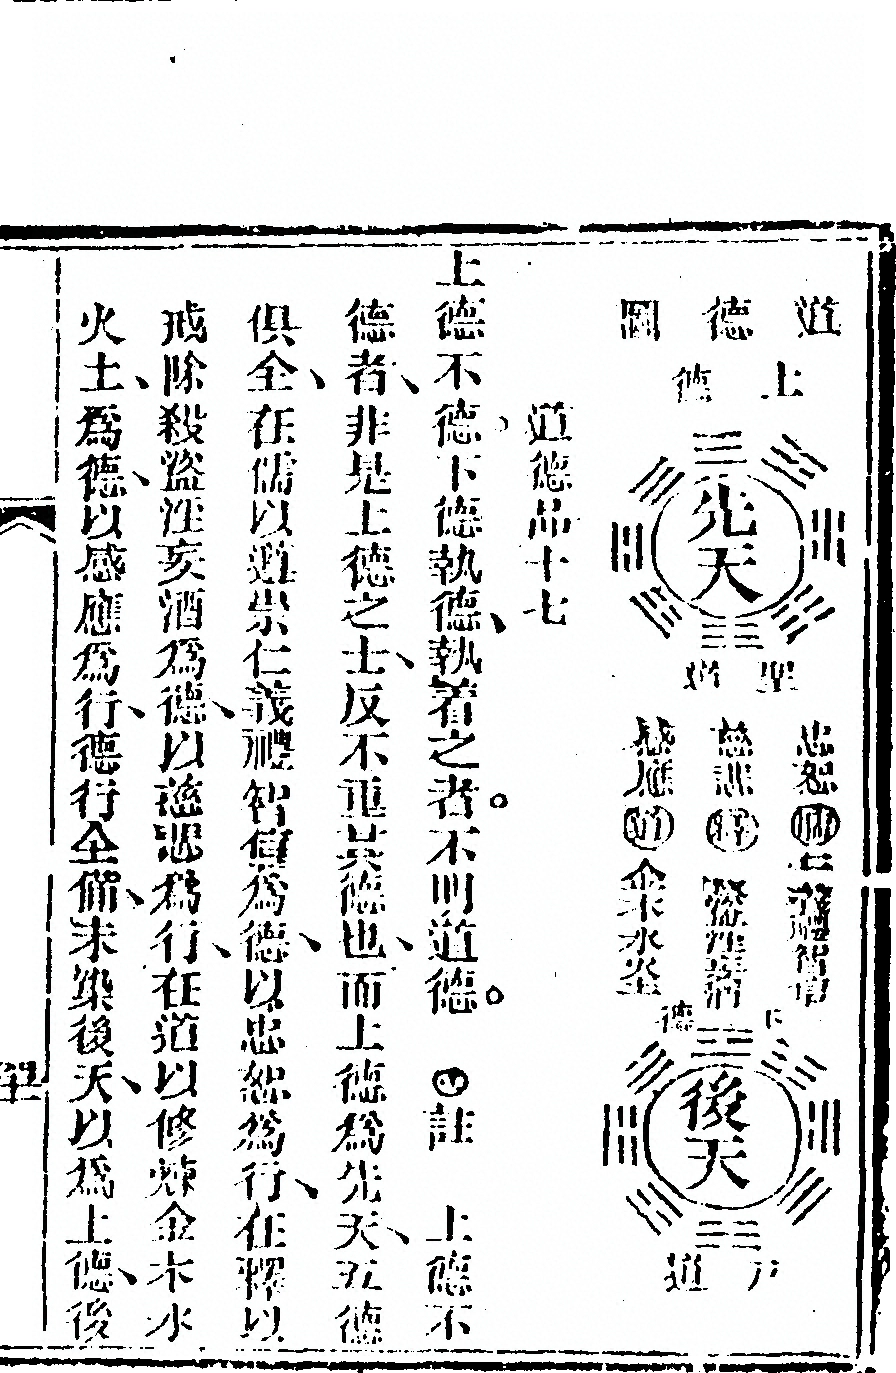 道德圖
上德
先天
聖道
忠恕 儒 仁義禮智信
慈悲 釋 殺盜淫妄酒
感應 道 金木水火土
下德
後天
凡道
道德品十七
上德不德。下德執德、執着之者。不明道德。 註 上德不
德者、非是上德之士、反不重其德也、而上德為先天、五德
俱全、在儒以道崇仁義禮智信為德、以忠恕為行、在釋以
戒除殺盜淫妄酒為德、以慈悲為行、在道以修煉金木水
火土、為德、以感應為行、德行全備、未染後天、以為上德、後